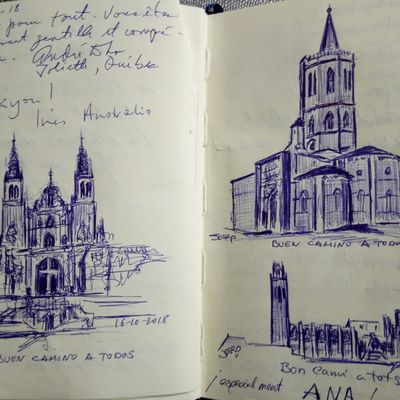 .18
pour tout. Vous êtes
gentille et
André
Joliette, Québec
Inès Australia
16-10-2018
BUEN CAMINO A TODOS
Josep
BUEN CAMINO A TODOS
Josep
Bon Camí a tots
¡especialment
ANA!